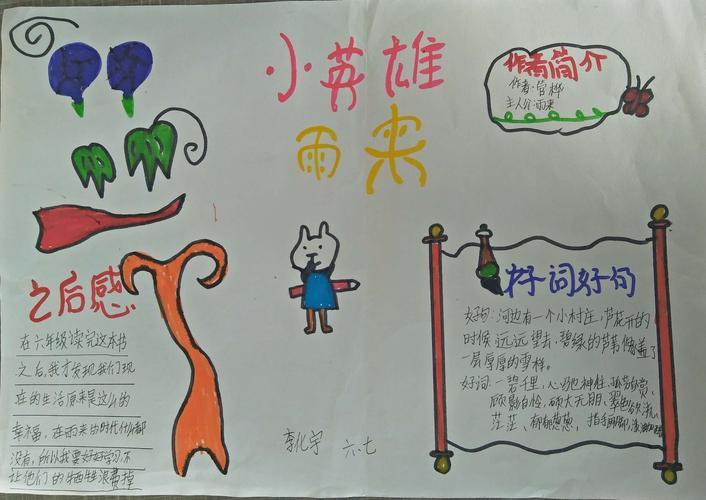 小英雄
雨来
作者简介
作者:管桦
主人公:雨来
之后感
在六年级读完这本书
之后,我才发现我们现
在的生活原来是这么的
幸福,在雨来的时代什么都
没有,所以我要好好学习不
让他们的牺牲浪费掉
好词好句
好句:河边有一个小村庄,芦花开的
时候,远远望去,碧绿的芦苇像盖了
一层厚厚的雪样。
好词:一碧千里,心驰神往,孤芳自赏,
顾影自怜,硕大无朋,翠色欲流,
茫茫、郁郁葱葱,指手画脚
李化宇 六.七